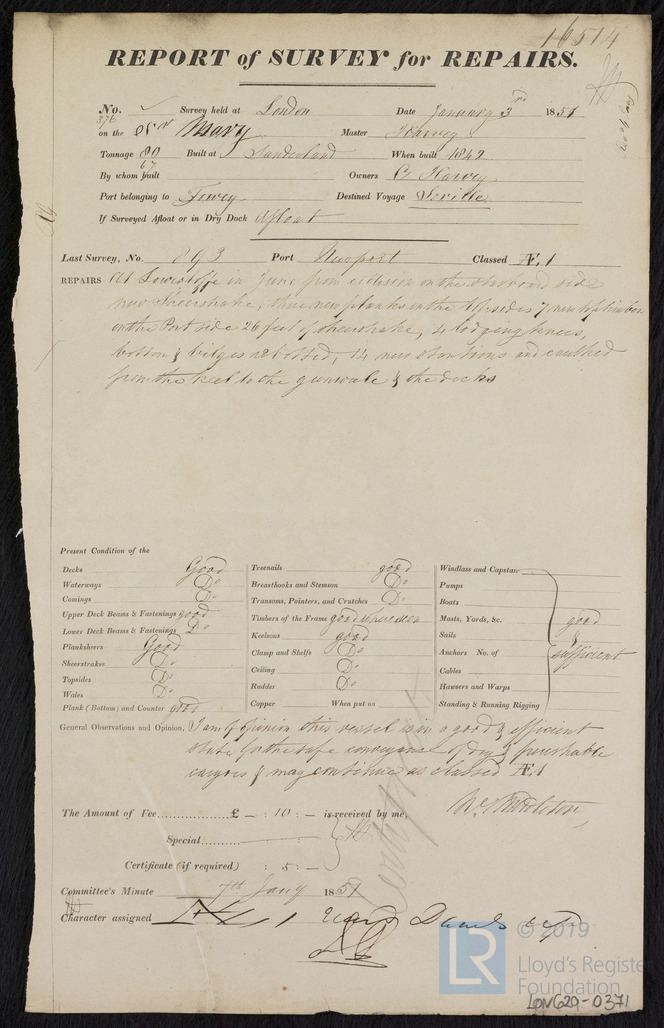 16514
REPORT of SURVEY for REPAIRS.
No. Survey held at London Date January 3rd 1851
376 on the Mary Master Harvey
Tonnage 80 Built at Sunderland When built 1842
67
By whom built Owners C Harvey
Port belonging to Fowey Destined Voyage Seville
If Surveyed Afloat or in Dry Dock Afloat
Last Survey, No. 893 Port Newport Classed Æ.1
REPAIRS At Lowestoffe in June from collision on the starboard side
new Sheerstrake, three new planks in the topsides 7 new toptimbers
on the Port side 26 feet of sheerstrake, 4 lodging knees,
bottom & bilges rebolted, 14 new stantions and caulked
from the keel to the gunwale & the decks
Present Condition of the
Decks Good
Waterways Do
Comings Do
Upper Deck Beams & Fastenings good
Lower Deck Beams & Fastenings Do
Planksheers Good
Sheerstrakes Do
Topsides Do
Wales Do
Plank (Bottom) and Counter good
Treenails good
Breasthooks and Stemson Do
Transoms, Pointers, and Crutches Do
Timbers of the Frame good where seen
Keelsons good
Clamp and Shelfs Do
Ceiling Do
Rudder Do
Copper When put on
Windlass and Capstan
Pumps
Boats
Masts, Yards, &c. good
Sails &
Anchors No. of sufficient
Cables
Hawsers and Warps
Standing & Running Rigging
General Observations and Opinion. I am of Opinion this vessel is in a good & efficient
state for the safe conveyance of dry & perishable
cargoes & may continue as classed Æ1
The Amount of Fee £ — : 10 : — is received by me,
Special
Certificate (if required) : 5 : —
Committee's Minute 7th Jany 1851
Character assigned
© 2019
LR Lloyd's Register
Foundation
LON629-0371